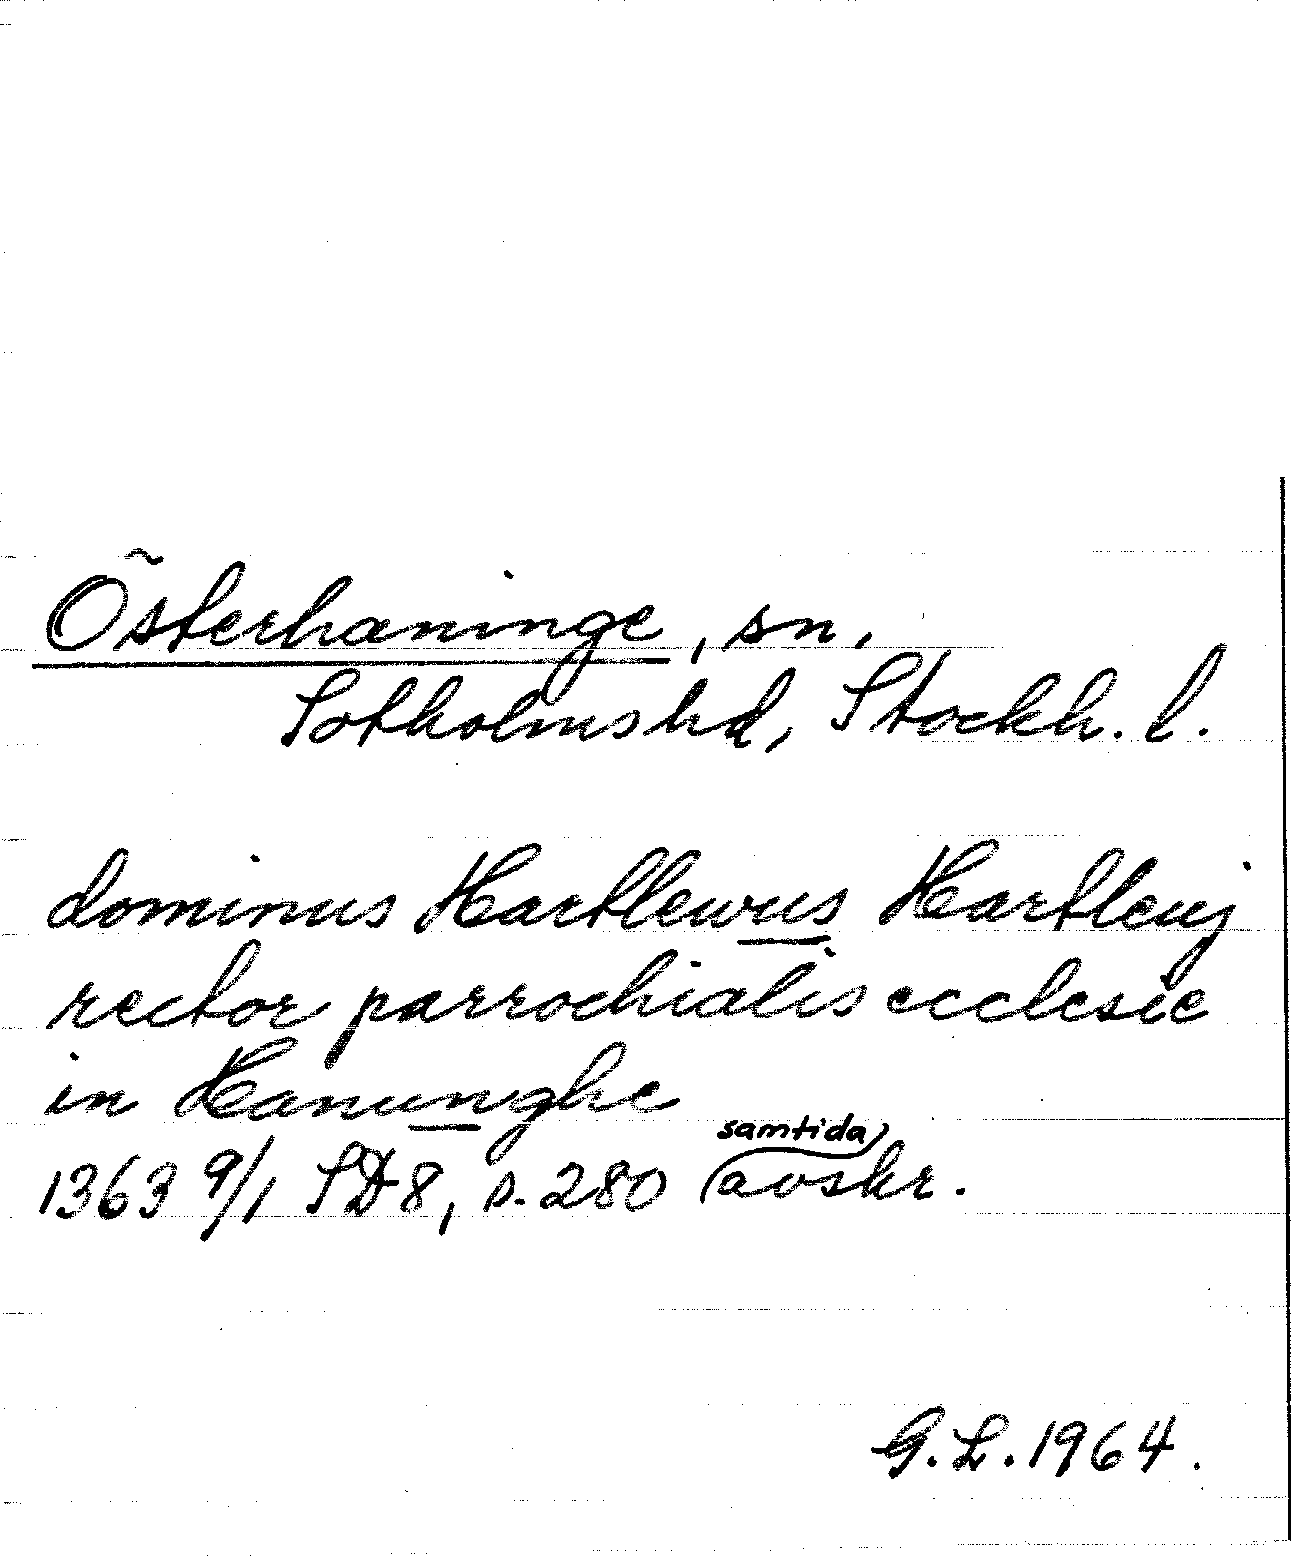 Österhaninge, sn.
Sotholms hd, Stockh. l.
dominus Hartlewus Hartleuj
rector parrochialis ecclesie
in Hanunghe
samtida
1363 9/1 SD 8, s. 280 (avskr.
G. L. 1964.